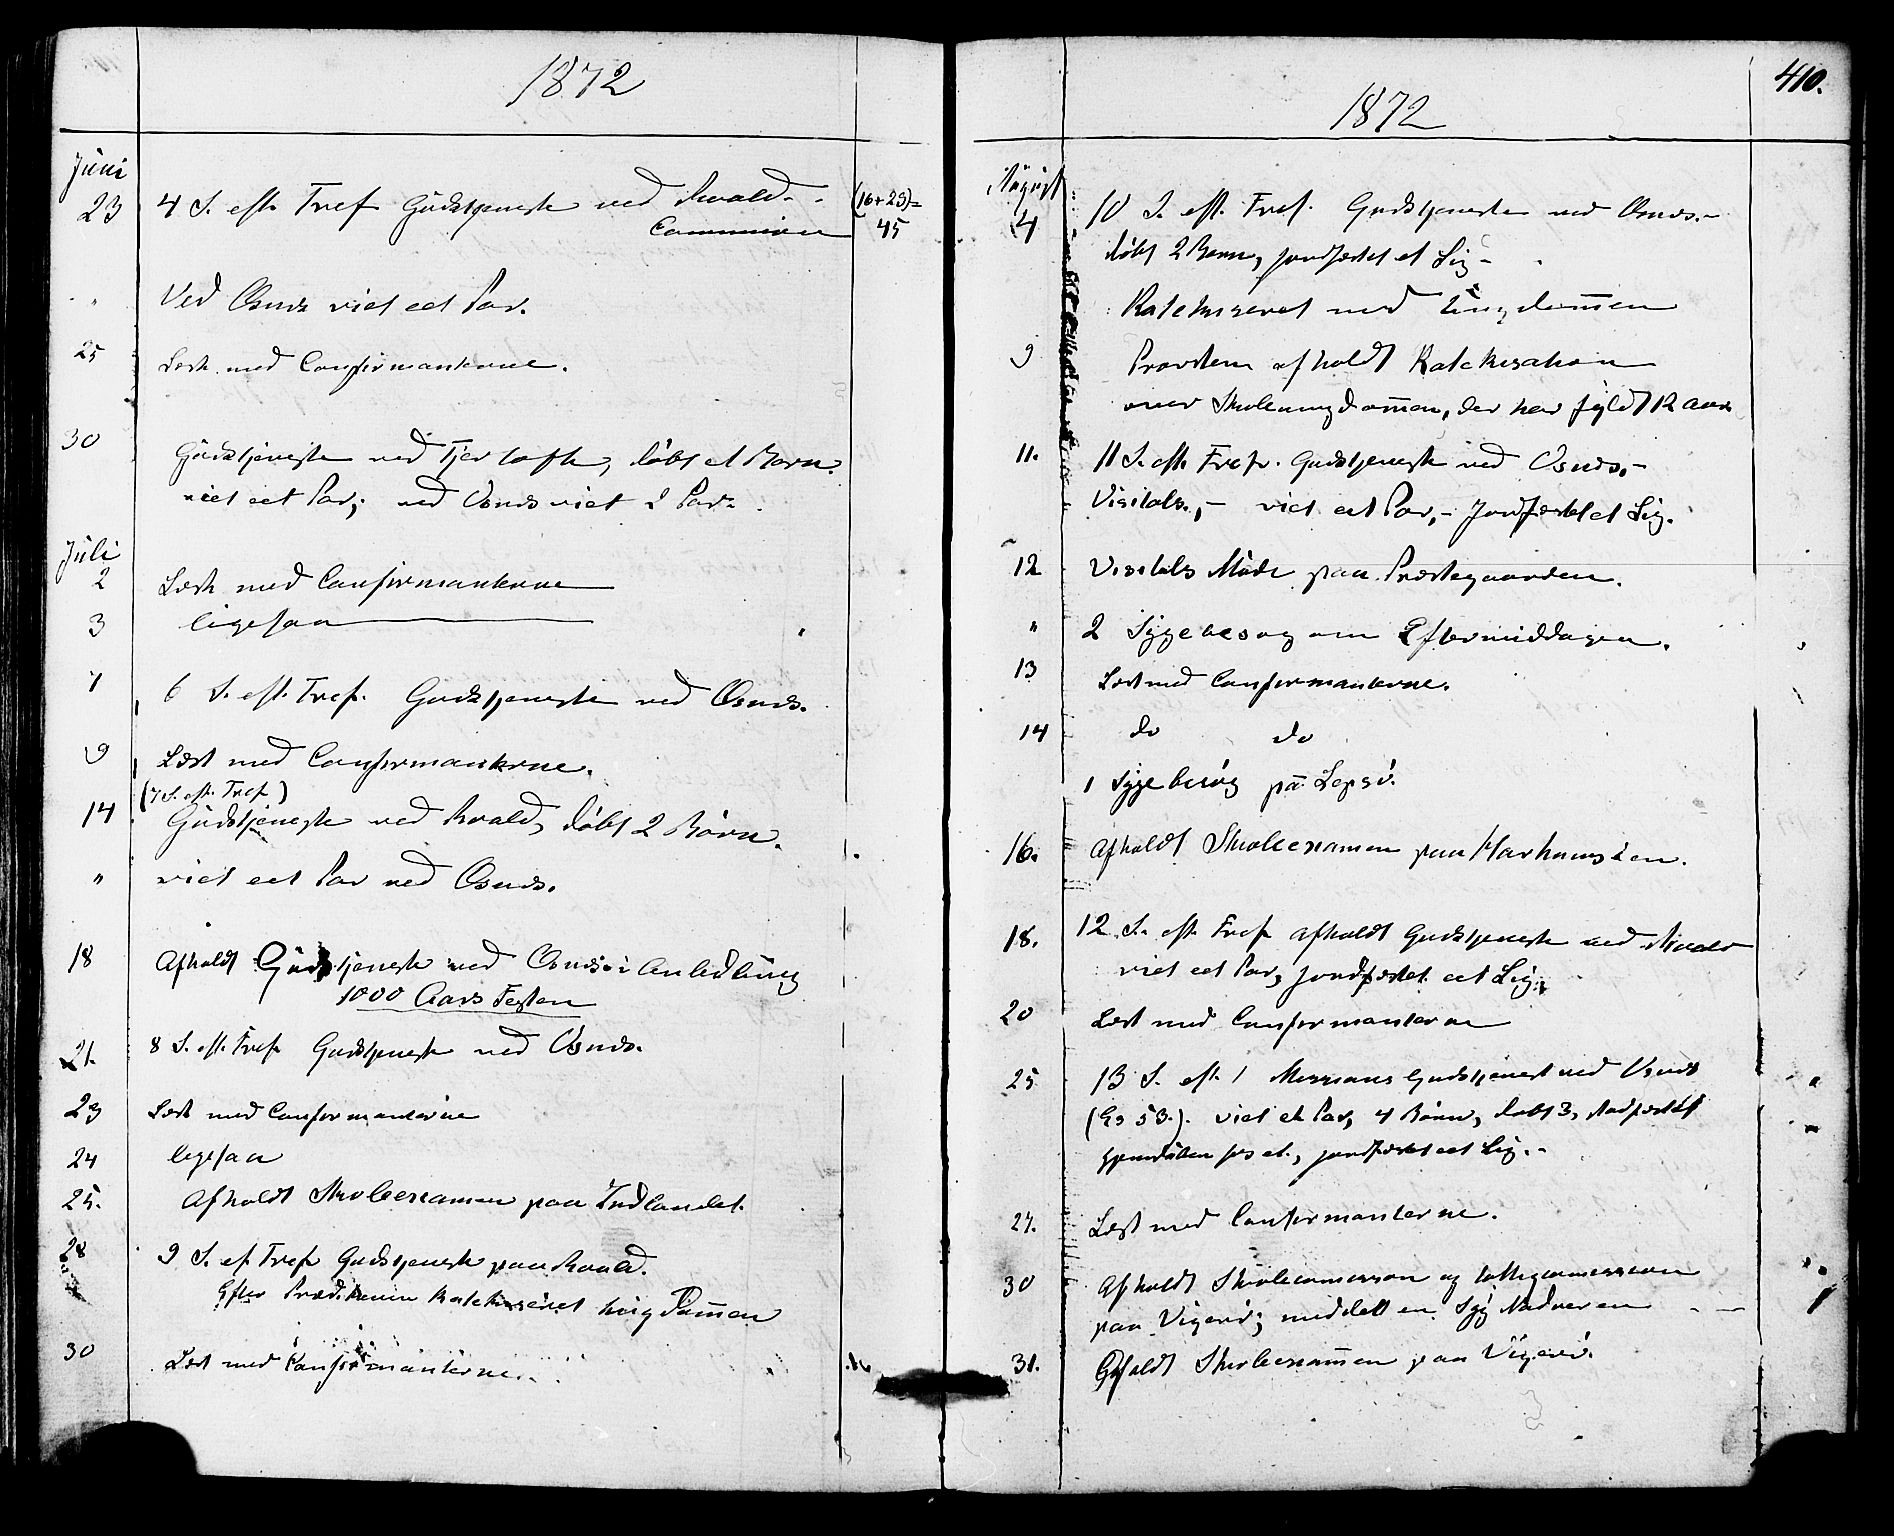 1872
Juni
23 4 S. eft. Tref Gudstjeneste ved Roald. (16+29)=
Communion 45
" Ved Osnds viet eet Par.
25 Læst med Confirmanterne.
30 Gudstjeneste ved Fjertofte, døbt et Barn
viet eet Par; ved Osnds viet 2 Par.
Juli
2 Læst med Confirmanterne
3 ligesaa
7 6 S. eft. Tref. Gudstjeneste ved Osnds.
9 Læst med Confirmanterne.
(7 S. eft. Tref)
14 Gudstjeneste ved Roald, døbt 2 Børn.
" viet eet Par ved Osnds.
18 Afholdt Gudstjeneste ved Osnds i Anledning
1000 Aars Festen
21. 8 S. eft. Tref Gudstjeneste ved Osnds.
23 Læst med Confirmanterne
24 ligesaa
25. Afholdt Skoleexamen paa Indlandet.
28 9 S. ef Tref Gudstjeneste paa Roald.
Efter Prædikenen Katechiseret Ungdommen
30 Læst med Confirmanterne.
410.
1872
August
4 10 S. eft. Tref. Gudstjeneste ved Osnds.-
døbt 2 Børn, jordfæstet et Lig -
Katechiseret med Ungdommen
9 Provsten afholdt Katekisation
over Skoleungdommen, der har fyldt 12 Aar
11. 11 S. eft. Tref. Gudstjeneste ved Osnds.-
Visitats., - viet eet Par, - Jordfæstet et Lig.
12 Visitats Møde paa Præstegaarden.
" 2 Sygebesøg om Eftermiddagen.
13 Læst med Confirmanterne.
14 do do
1 Sygebesøg på Lepsö.
16. Afholdt Skoleexamen paa Harhamsøen.
18. 12 S. eft. Tref afholdt Gudstjeneste ved Roald
viet eet Par, jordfæstet eet Lig.
20 Læst med Confirmanterne
25 13 S. eft. Missions Gudstjenest ved Osnds
(Es 53.). viet et Par, 4 Børn, døbt 3, stadfæstet
for et, jordfæstet eet Lig. -
27. Læst med Confirmanterne.
30 Afholdt Skolecommission og Fattigcommission
paa Vigerö; meddelt en Syg Nadveren
31. Afholdt Skoleexammen paa Vigerö.